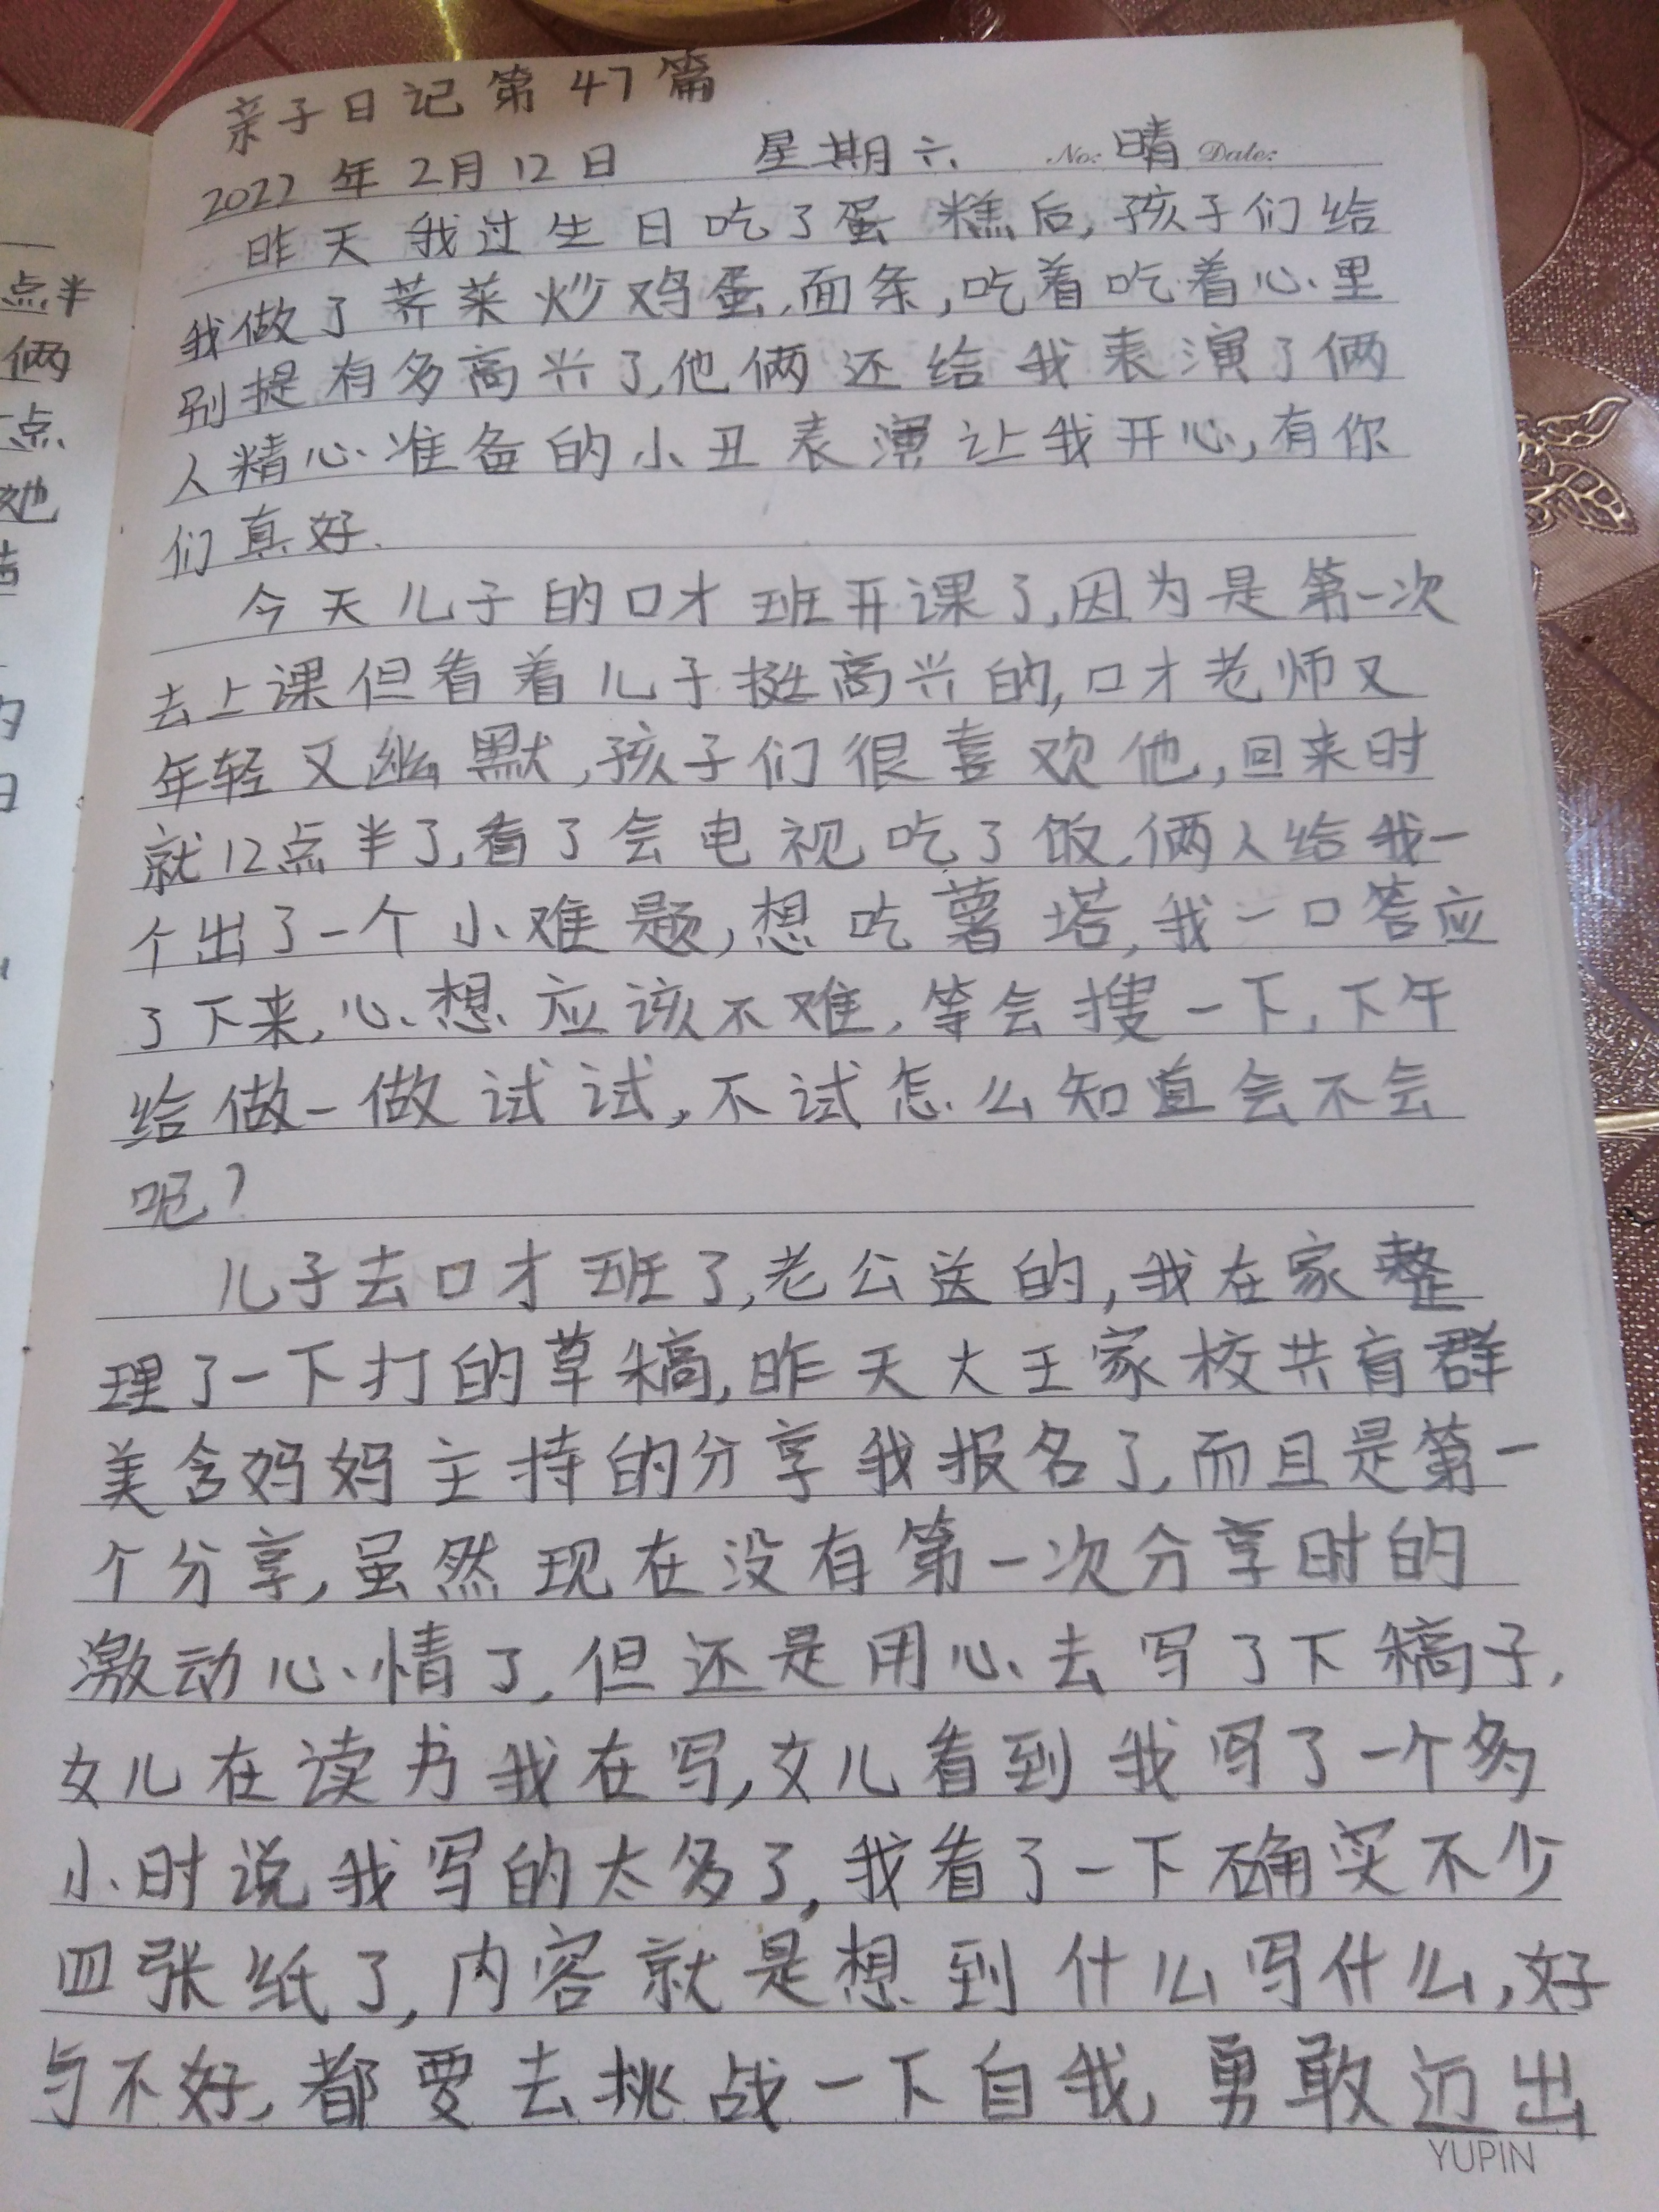 亲子日记第47篇
2022年2月12日 星期六 No: 晴 Date:
昨天我过生日吃了蛋糕后,孩子们给
我做了荠菜炒鸡蛋,面条,吃着吃着心里
别提有多高兴了,他俩还给我表演了俩
人精心准备的小丑表演让我开心,有你
们真好.
今天儿子的口才班开课了,因为是第一次
去上课但看着儿子挺高兴的,口才老师又
年轻又幽默,孩子们很喜欢他,回来时
就12点半了,看了会电视吃了饭,俩人给我一
个出了一个小难题,想吃薯塔,我一口答应
了下来,心想应该不难,等会搜一下,下午
给做一做试试,不试怎么知道会不会
呢?
儿子去口才班了,老公送的,我在家整
理了一下打的草稿,昨天大王家校共育群
美含妈妈主持的分享我报名了,而且是第一
个分享,虽然现在没有第一次分享时的
激动心情了,但还是用心去写了下稿子,
女儿在读书我在写,女儿看到我写了一个多
小时说我写的太多了,我看了一下确实不少
四张纸了,内容就是想到什么写什么,好
与不好,都要去挑战一下自我,勇敢迈出
YUPIN
点半
俩
点
她